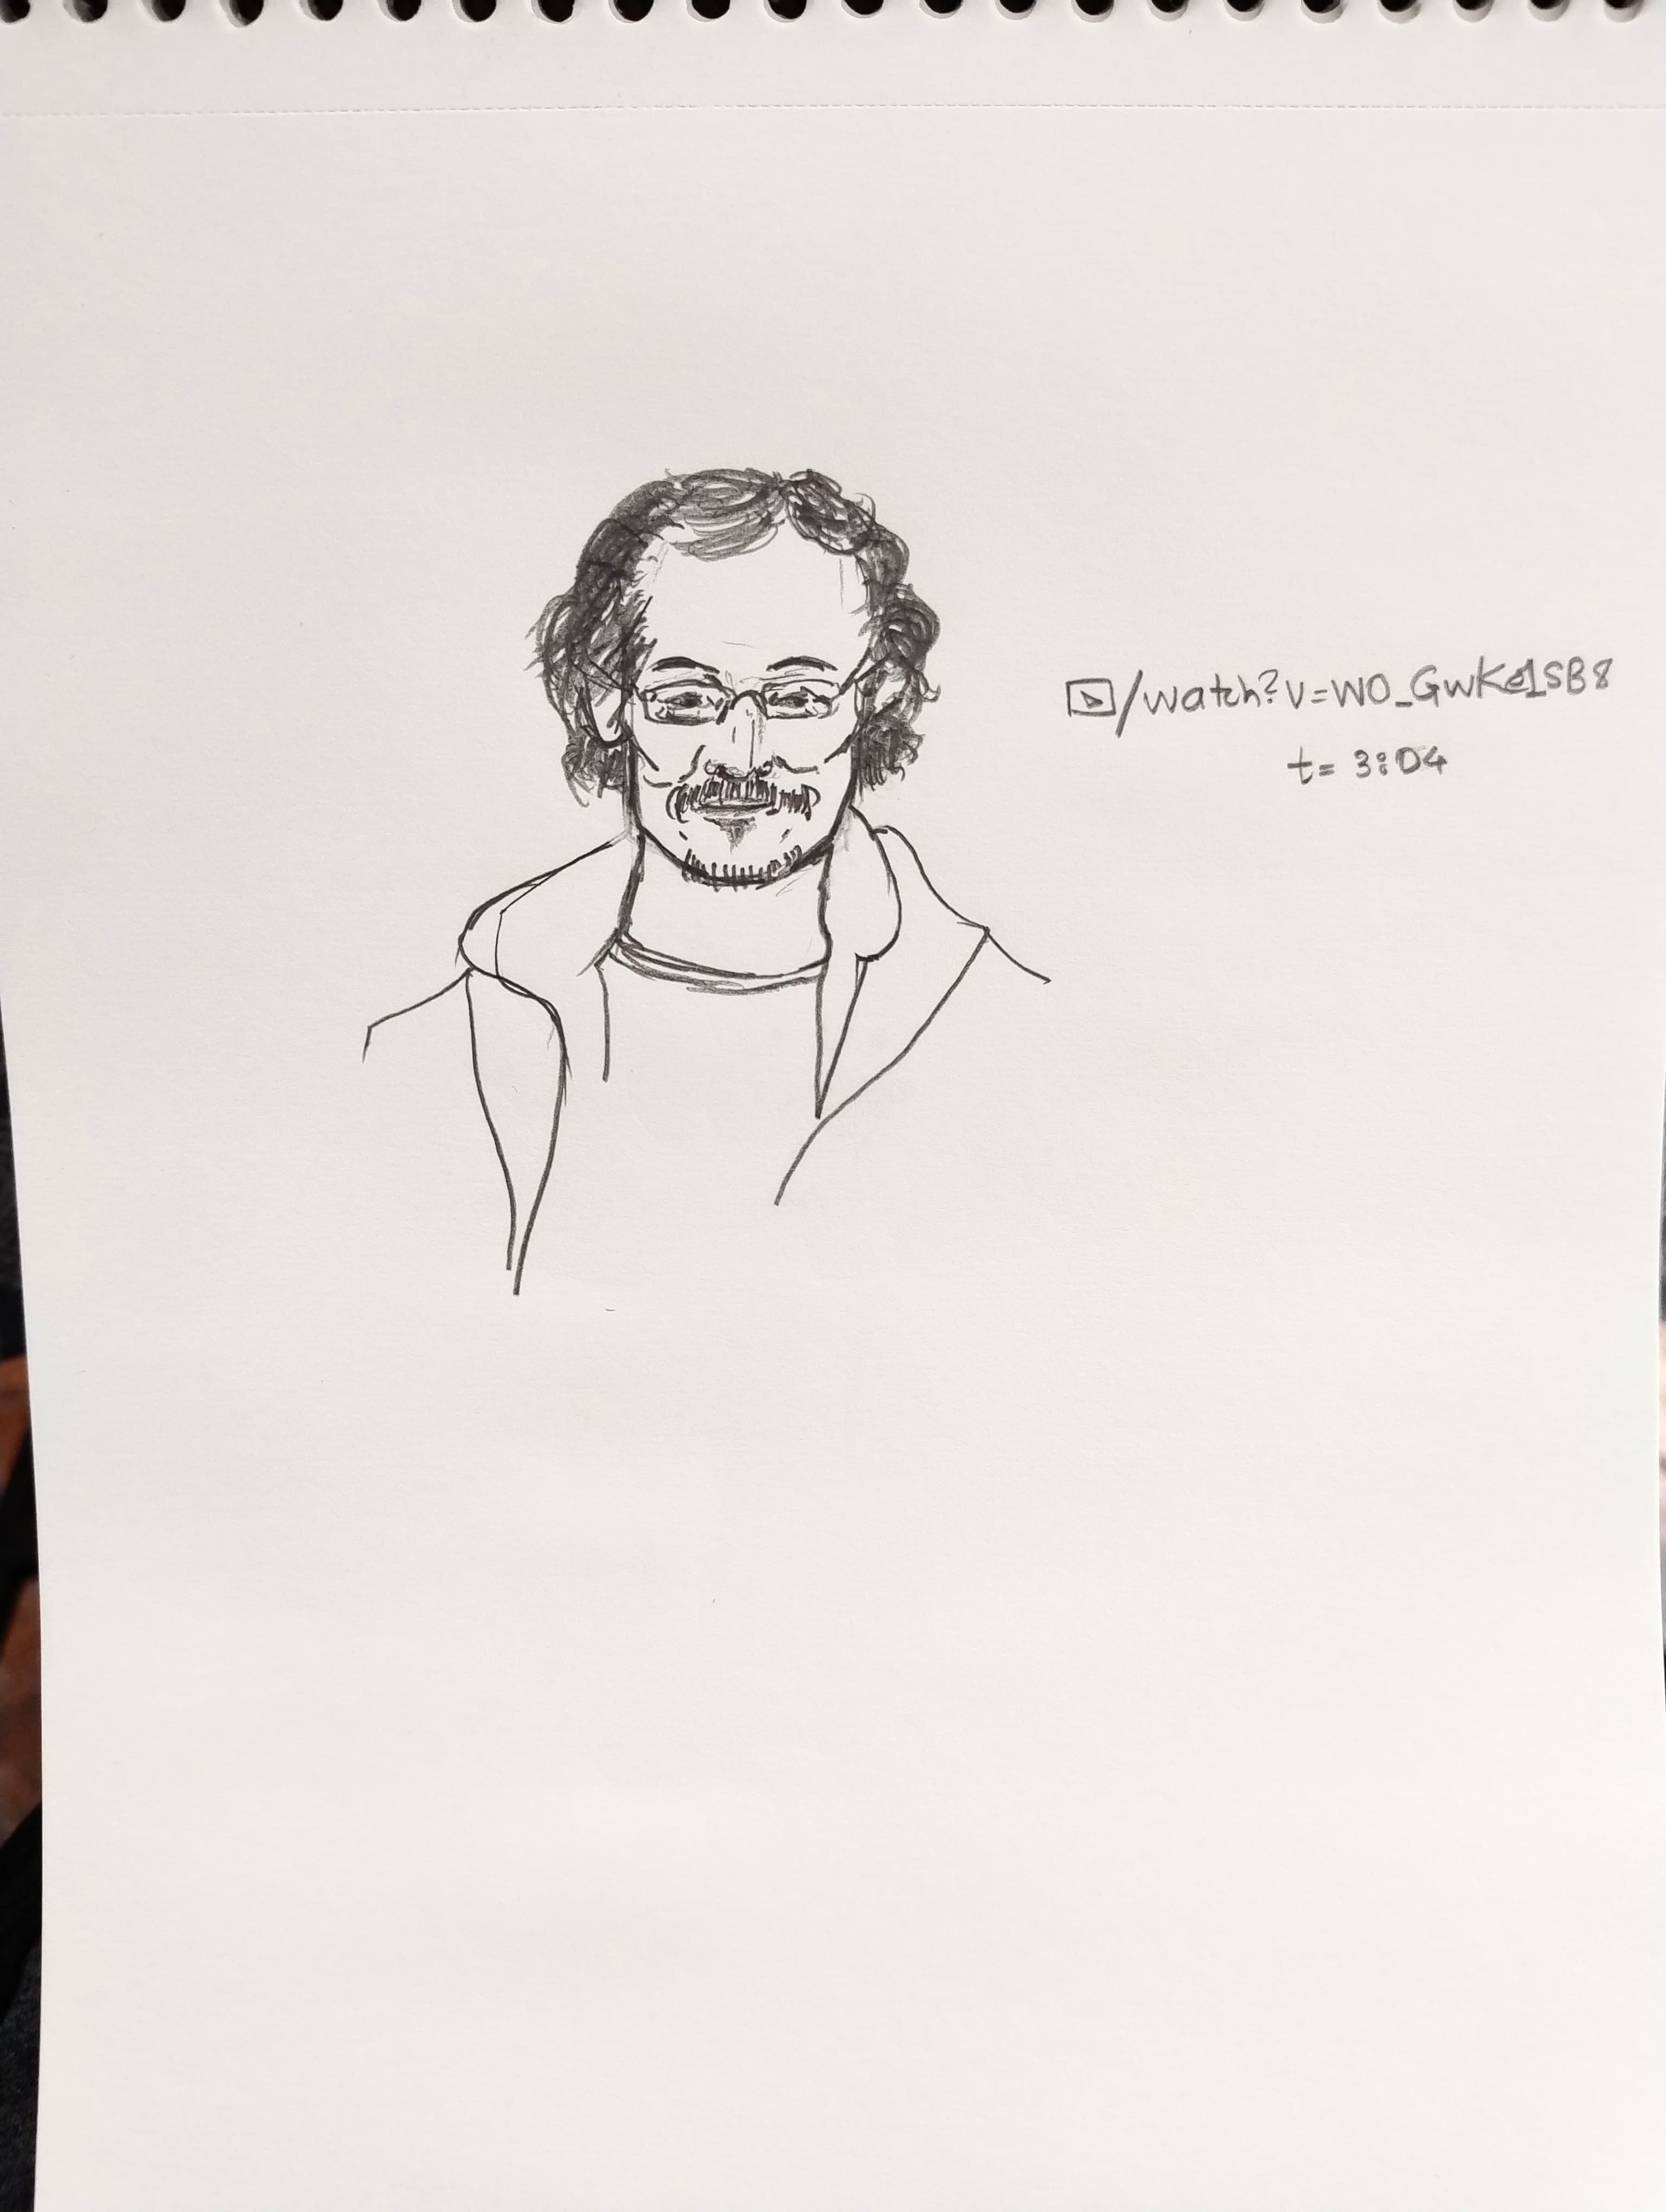 /watch?v=WO_GwKe1SB8
t= 3:04